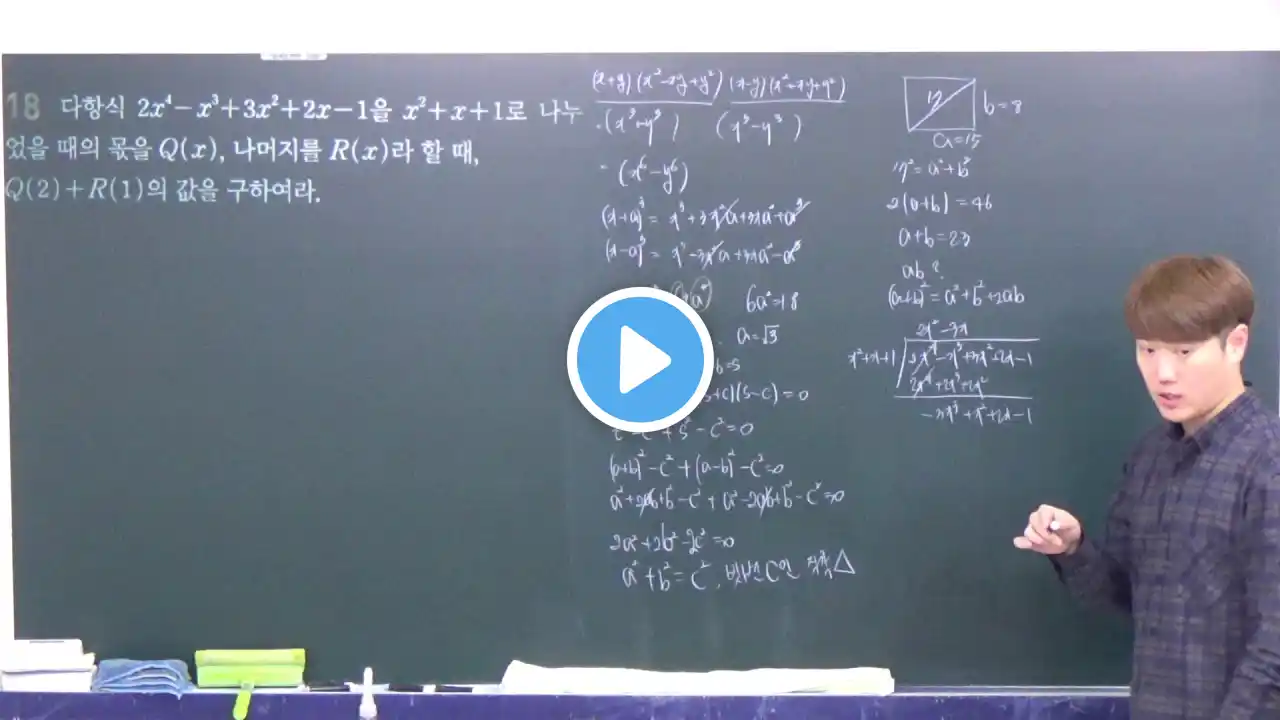 18 다항식 2x⁴-x³+3x²+2x-1을 x²+x+1로 나누
었을 때의 몫을 Q(x), 나머지를 R(x)라 할 때,
Q(2)+R(1)의 값을 구하여라.
(x+y)(x²-xy+y²)(x-y)(x²+xy+y²)
(x³+y³) (x³-y³)
(x⁶-y⁶)
(x+a)³ = x³+3x²a+3xa²+a³
(x-a)³ = x³-3x²a+3xa²-a³
6a²=18
a=√3
b=5
+c)(5-c)=0
-c²=0
(a+b)²-c²+(a-b)²-c²=0
a²+2ab+b²-c²+a²-2ab+b²-c²=0
2a²+2b²-2c²=0
a²+b²=c², 빗변 C인 직각△
17
b=8
a=15
17²=a²+b²
2(a+b)=46
a+b=23
ab?
(a+b)²=a²+b²+2ab
2x²-3x
x²+x+1 2x⁴-x³+3x²+2x-1
2x⁴+2x³+2x²
-3x³+x²+2x-1